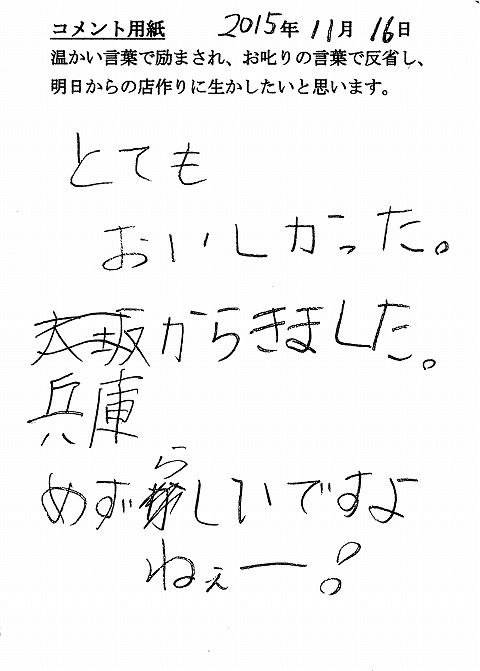 コメント用紙 2015年 11月 16日
温かい言葉で励まされ、お叱りの言葉で反省し、
明日からの店作りに生かしたいと思います。
とても
おいしかった。
大坂からきました。
兵庫
めずらしいですよ
ねぇー!